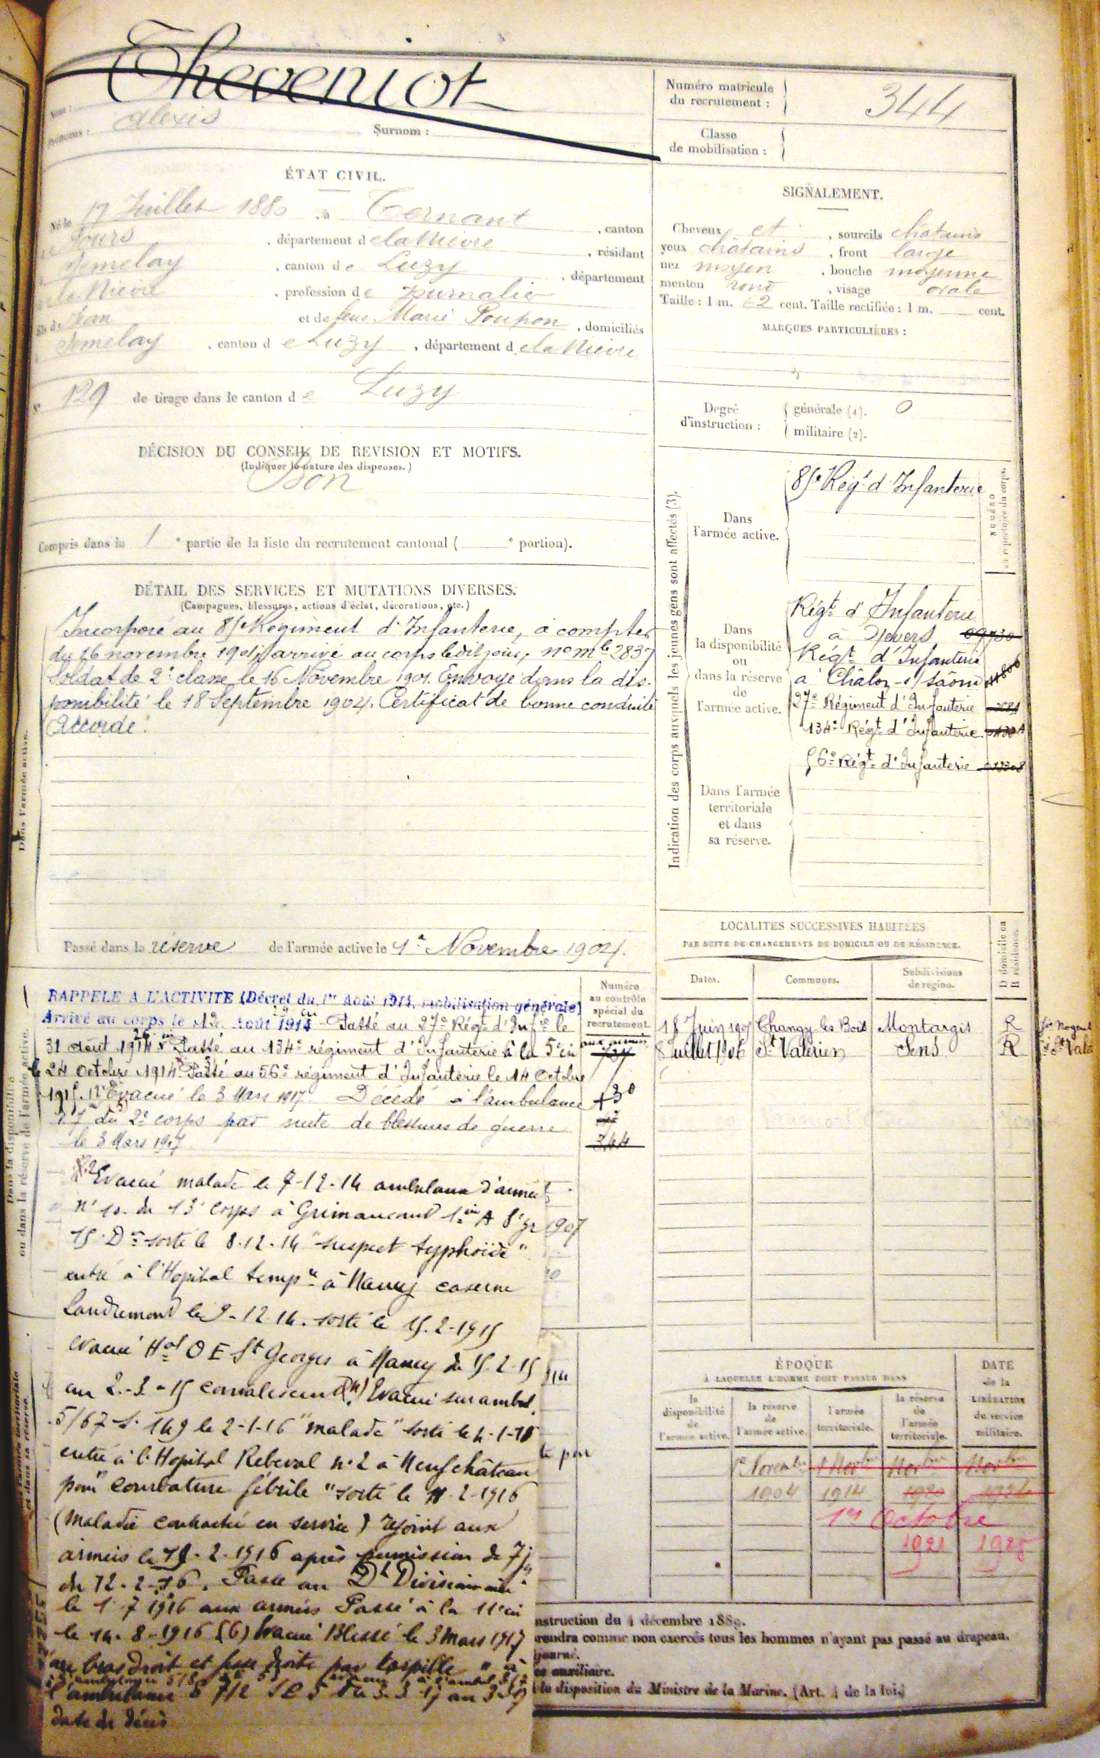 Theveniot
Nom :
Prénoms : Alexis Surnom :
Numéro matricule du recrutement : 344
Classe de mobilisation :
ÉTAT CIVIL.
Né le 17 Juillet 1880 à Ternant, canton
de Fours, département de la Nièvre, résidant
Semelay, canton de Luzy, département
de la Nièvre, profession de journalier
fils de Jean et de feue Marie Poupon, domiciliés
Semelay, canton de Luzy, département de la Nièvre
N° 129 de tirage dans le canton de Luzy
DÉCISION DU CONSEIL DE REVISION ET MOTIFS.
(Indiquer la nature des dispenses.)
Bon
Compris dans la 1e partie de la liste du recrutement cantonal ( e portion).
DÉTAIL DES SERVICES ET MUTATIONS DIVERSES.
(Campagnes, blessures, actions d'éclat, décorations, etc.)
Incorporé au 85e Régiment d'Infanterie, à compter
du 16 novembre 1901, arrivé au corps le dit jour, n° mle 2837
Soldat de 2e classe, le 16 Novembre 1901. Envoyé dans la dis-
ponibilité le 18 Septembre 1904. Certificat de bonne conduite
Accordé.
Dans l'armée active.
Passé dans la réserve de l'armée active le 1er Novembre 1904.
RAPPELÉ A L'ACTIVITÉ (Décret du 1er Août 1914, mobilisation générale)
Arrivé au corps le Août 1914 Passé au 27e Régt d'Infie le
31 août 1914 Passé au 134e régiment d'Infanterie à la 5e Cie
le 24 Octobre 1914 Passé au 56e régiment d'Infanterie le 14 Octobre
1915. Evacué le 3 Mars 1917 Décédé à l'ambulance
du 2e corps par suite de blessures de guerre
le 3 Mars 1917
Numéro
au contrôle
spécial du
recrutement.
344
Dans la disponibilité
ou dans la réserve de l'armée active.
Evacué malade le 7-12-14 ambulance d'armée
n° 10 du 13e Corps à Grimaucourt
sorti le 8-12-14 "suspect typhoïde"
entré à l'Hopital tempre à Nancy caserne
Landremont le 9-12-14. sorti le 15-2-1915
evacué Hal O E St Georges à Nancy du 15-2-15
au 2-3-15 convalescent Evacué sur ambce
5/67 149 le 2-1-16 "malade" sorti le
entré à l'Hopital Rebeval n° 2 à Neufchâteau
pour "courbature fébrile" sorti le 11-2-1916
(maladie contractée en service) rejoint aux
armées le 19-2-1916 après permission de 7j
du 12-2-16. Passé au Dt Divisionnaire
le 1-7-1916 aux armées Passé à la 11e Cie
le 14-8-1916 (6) Evacué Blessé le 3 Mars 1917
au bras droit et droite par torpille
l'ambulance
date du décès
1907
SIGNALEMENT.
Cheveux et, sourcils châtains
yeux châtains, front large
nez moyen, bouche moyenne
menton rond, visage ovale
Taille : 1 m. 62 cent. Taille rectifiée : 1 m. cent.
MARQUES PARTICULIÈRES :
Degré d'instruction : générale (1). 0
militaire (2).
Indication des corps auxquels les jeunes gens sont affectés (3).
NUMÉRO
au répertoire du corps.
Dans
l'armée active.
85e Régt d'Infanterie
Dans
la disponibilité
ou
dans la réserve
de
l'armée active.
Régt d'Infanterie
à Nevers
Régt d'Infanterie
à Châlon-s/-Saône
27e Régiment d'Infanterie
134e Régt d'Infanterie
56e Régt d'Infanterie
Dans l'armée
territoriale
et dans
sa réserve.
LOCALITÉS SUCCESSIVES HABITÉES
PAR SUITE DE CHANGEMENTS DE DOMICILE OU DE RÉSIDENCE.
Dates. Communes. Subdivisions de région. D domicile ou R résidence.
18 Juin 1905 Changy-les-Bois Montargis R
8 Juillet 1906 St Valérien Sens R
ÉPOQUE
À LAQUELLE L'HOMME DOIT PASSER DANS
DATE
de la
LIBÉRATION
du service
militaire.
la disponibilité de l'armée active. la réserve de l'armée active. l'armée territoriale. la réserve de l'armée territoriale.
1er Novembre 1 Novbre Novbre Novbre
1904 1914 1920 1926
1er Octobre
1921 1928
nstruction du 4 décembre 1889.
rendra comme non exercés tous les hommes n'ayant pas passé au drapeau.
journé.
ce auxiliaire.
la disposition du Ministre de la Marine. (Art. 4 de la loi.)